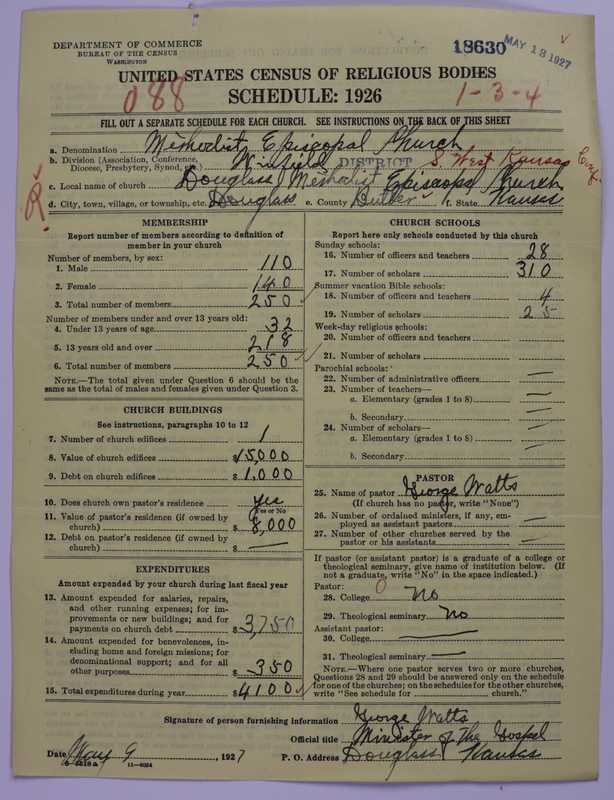 DEPARTMENT OF COMMERCE
BUREAU OF THE CENSUS
WASHINGTON
18630 MAY 13 1927
UNITED STATES CENSUS OF RELIGIOUS BODIES
088 SCHEDULE: 1926 1-3-4
FILL OUT A SEPARATE SCHEDULE FOR EACH CHURCH. SEE INSTRUCTIONS ON THE BACK OF THIS SHEET
a. Denomination Methodist Episcopal Church
b. Division (Association, Conference, Diocese, Presbytery, Synod, etc.) Winfield DISTRICT S. West Kansas Conf
c. Local name of church Douglass Methodist Episcopal Church
d. City, town, village, or township, etc. Douglass e. County Butler f. State Kansas
MEMBERSHIP
Report number of members according to definition of
member in your church
Number of members, by sex:
1. Male 110
2. Female 140
3. Total number of members 250
Number of members under and over 13 years old:
4. Under 13 years of age 32
5. 13 years old and over 218
6. Total number of members 250
NOTE.—The total given under Question 6 should be the
same as the total of males and females given under Question 3.
CHURCH BUILDINGS
See instructions, paragraphs 10 to 12
7. Number of church edifices 1
8. Value of church edifices $15,000
9. Debt on church edifices $1,000
10. Does church own pastor's residence yes
Yes or No
11. Value of pastor's residence (if owned by
church) $ 8,000
12. Debt on pastor's residence (if owned by
church) $ —
EXPENDITURES
Amount expended by your church during last fiscal year
13. Amount expended for salaries, repairs,
and other running expenses; for im-
provements or new buildings; and for
payments on church debt $ 3,750
14. Amount expended for benevolences, in-
cluding home and foreign missions; for
denominational support; and for all
other purposes $ 350
15. Total expenditures during year $ 4100
CHURCH SCHOOLS
Report here only schools conducted by this church
Sunday schools:
16. Number of officers and teachers 28
17. Number of scholars 310
Summer vacation Bible schools:
18. Number of officers and teachers 4
19. Number of scholars 25
Week-day religious schools:
20. Number of officers and teachers
21. Number of scholars
Parochial schools:
22. Number of administrative officers —
23. Number of teachers—
a. Elementary (grades 1 to 8) —
b. Secondary —
24. Number of scholars—
a. Elementary (grades 1 to 8) —
b. Secondary —
PASTOR
25. Name of pastor George Watts
(If church has no pastor, write "None")
26. Number of ordained ministers, if any, em-
ployed as assistant pastors —
27. Number of other churches served by the
pastor or his assistants —
If pastor (or assistant pastor) is a graduate of a college or
theological seminary, give name of institution below. (If
not a graduate, write "No" in the space indicated.)
Pastor:
28. College 0 No
29. Theological seminary No
Assistant pastor:
30. College —
31. Theological seminary —
NOTE.—Where one pastor serves two or more churches,
Questions 28 and 29 should be answered only on the schedule
for one of the churches; on the schedules for the other churches,
write "See schedule for ______ church."
Signature of person furnishing information George Watts
Official title Minister of the Gospel
Date May 9, 1927 P. O. Address Douglass Kansas
11—9084